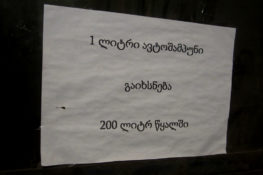 1 ლიტრი ავტოშამპუნი
გაიხსნება
200 ლიტრ წყალში